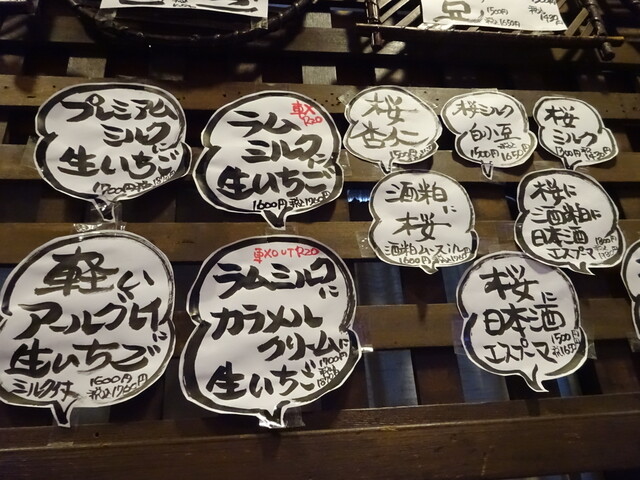 1500円 税込1650円
プレミアム
ミルクに
生いちご
1700円
車X
R20
ラム
ミルクに
生いちご
1600円 税込1760円
桜
杏仁
1500円
桜ミルク
白小豆
1500円 税込1650円
桜
ミルク
1300円 税込1430円
酒粕に
桜
酒粕ムース
1600円
桜に
酒粕に
日本酒
エスプーマ
軽い
アールグレイに
生いちご
ミルク付
1600円
税込1760円
車X OUT R20
ラムミルクに
カラメル
クリームに
生いちご
1700円
税込
1870円
桜に
日本酒
エスプーマ
1500円
税込1650円